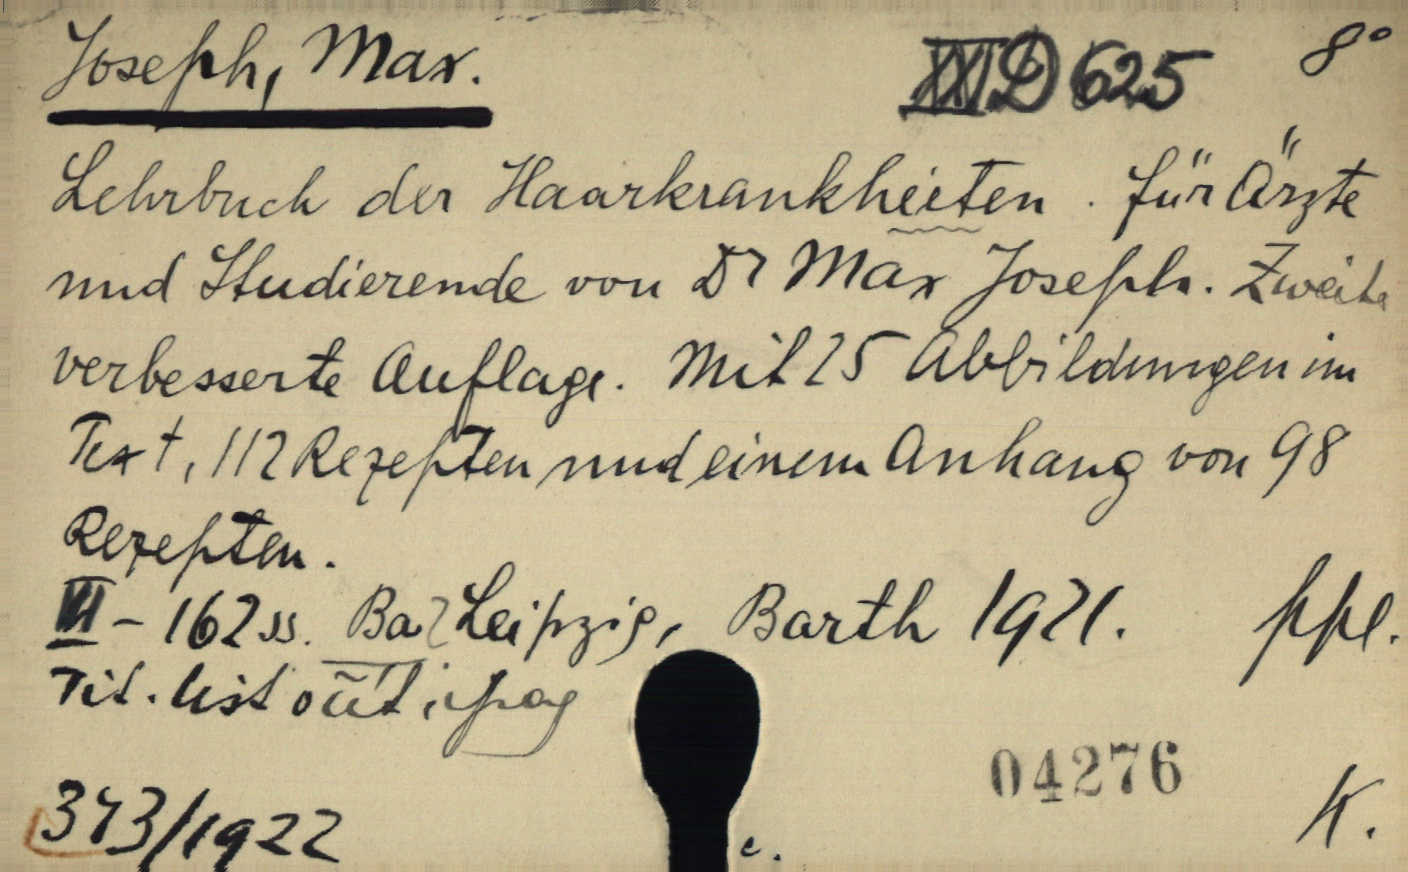 Joseph, Max. XXI D 625 8°
Lehrbuch der Haarkrankheiten. für Ärzte
und Studierende von Dr Max Joseph. Zweite
verbesserte Auflage. Mit 25 Abbildungen im
Text, 112 Rezepten und einem Anhang von 98
Rezepten.
VI - 162 ss. Leipzig, Barth 1921. ppl.
Tit.
04276
343/1922 c. K.